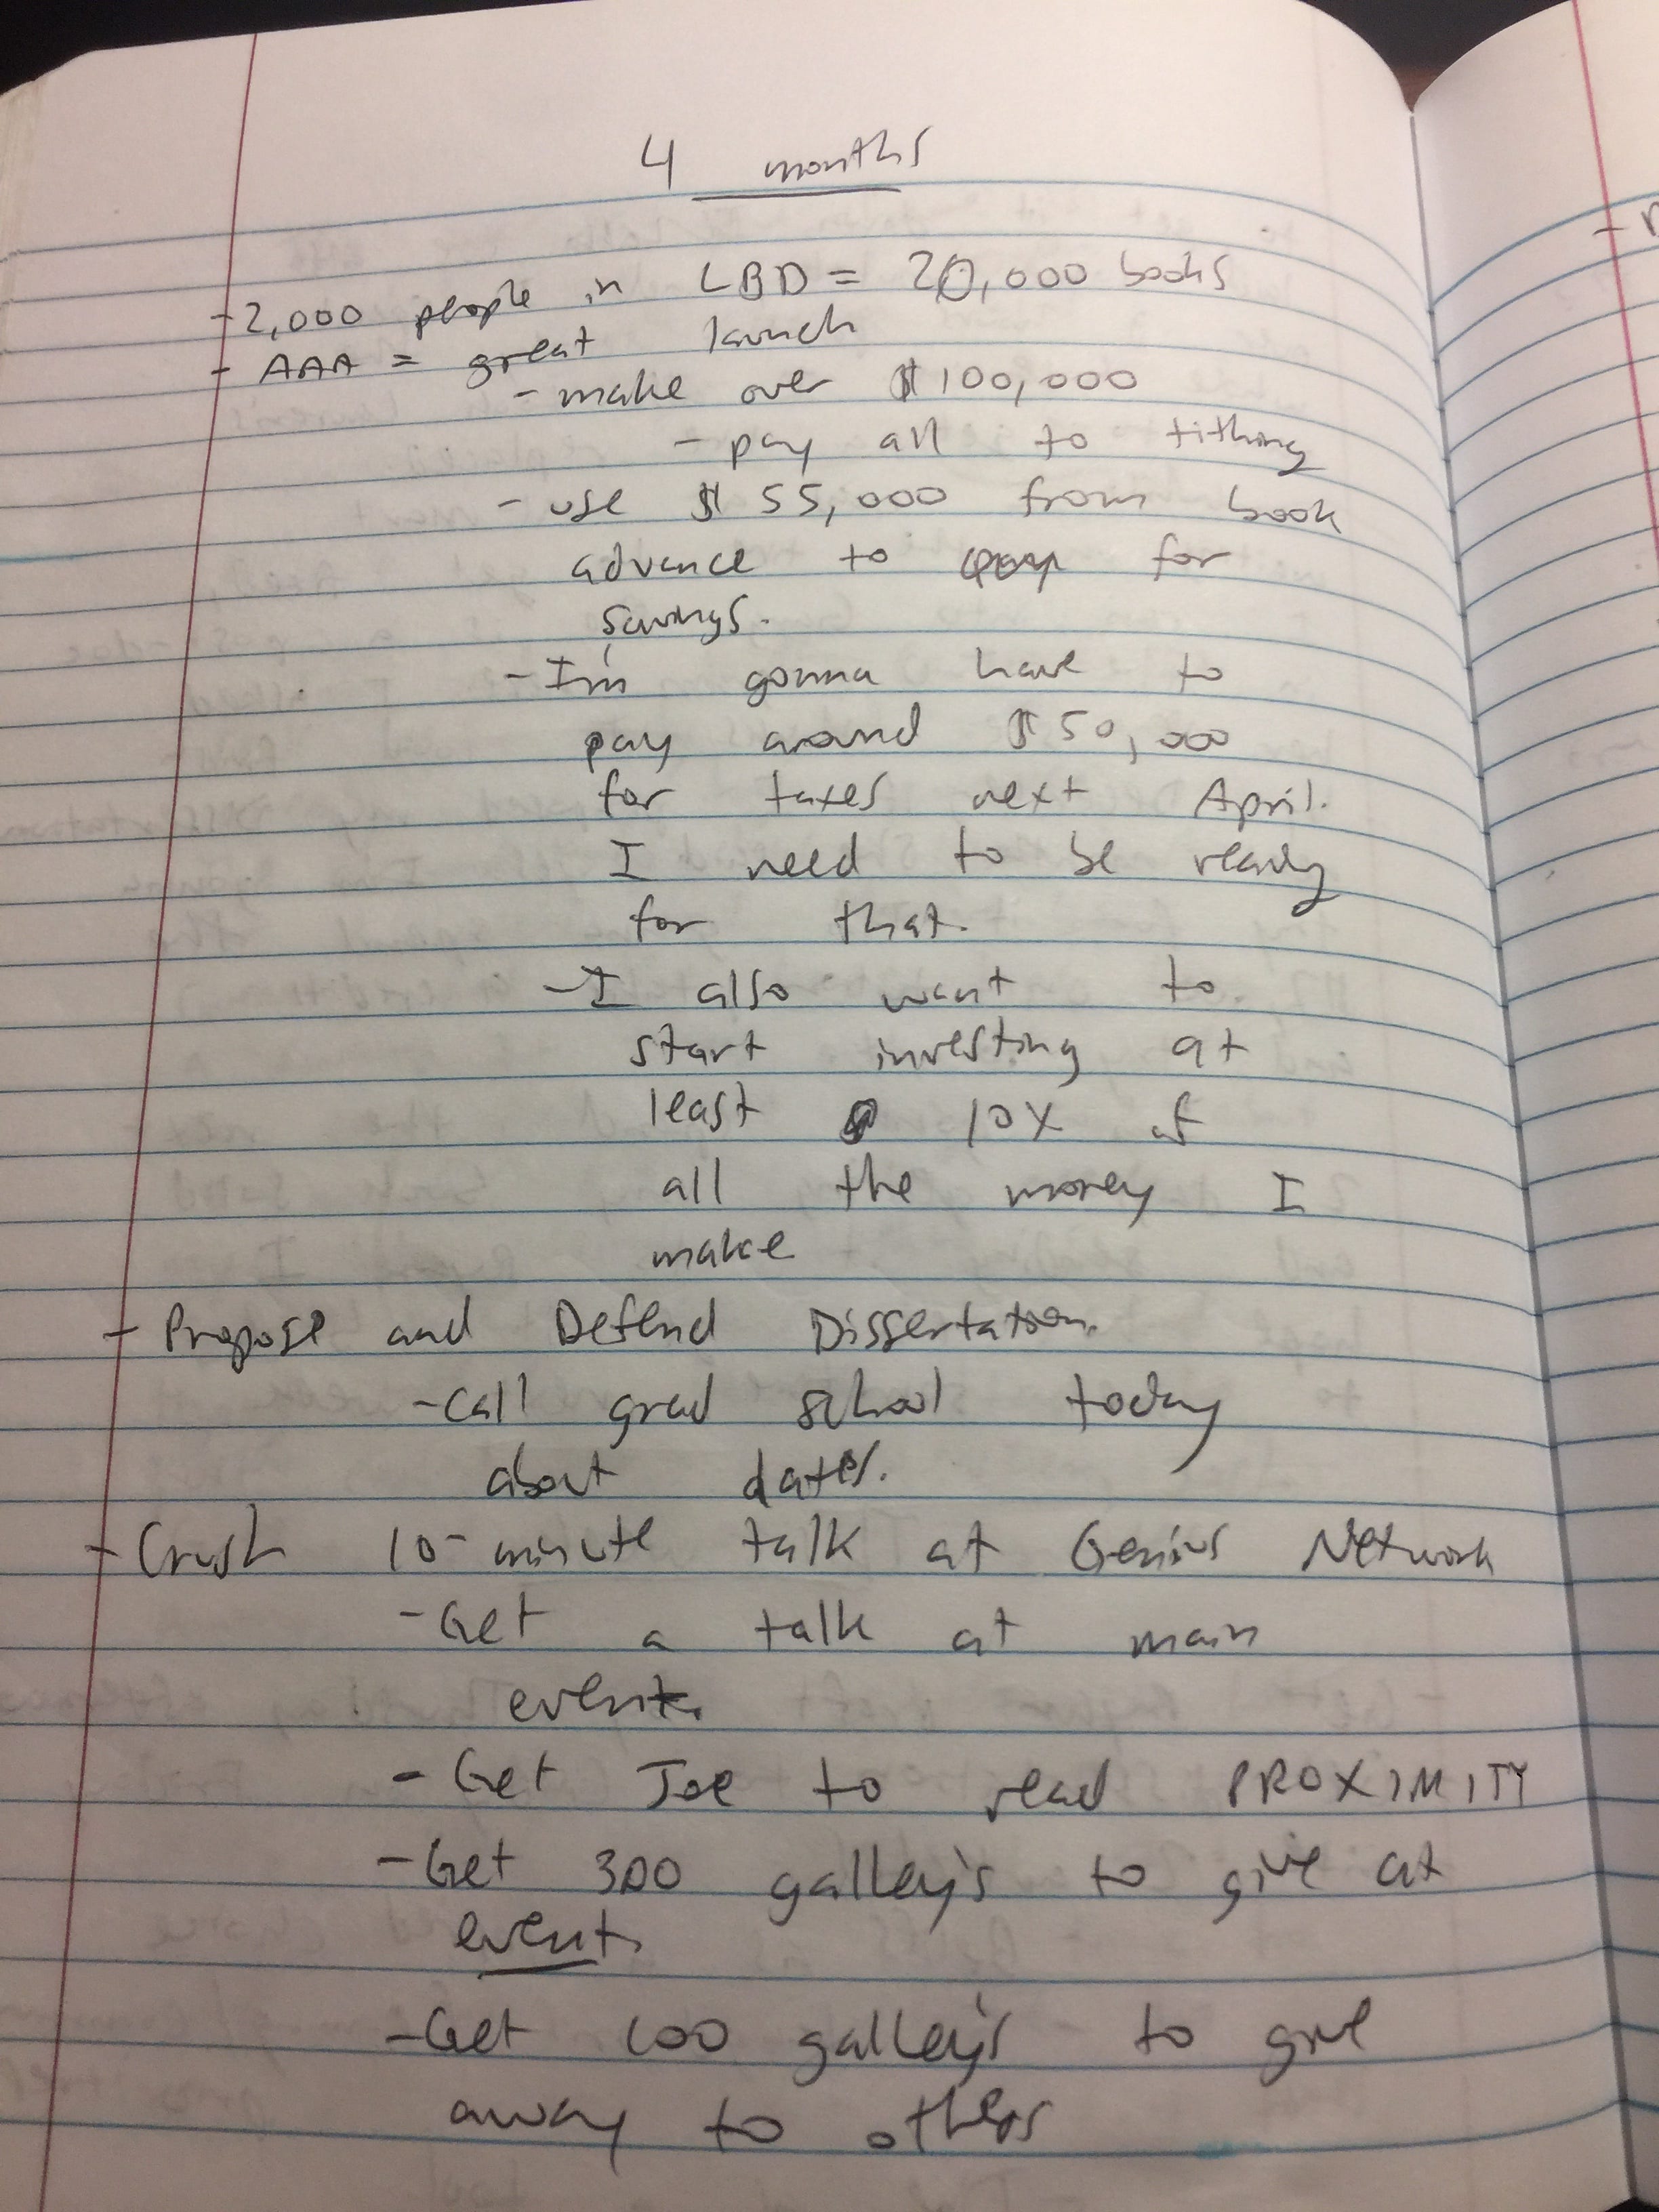 4 months
- 2,000 people in LBD = 20,000 books
- AAA = great launch
- make over $100,000
- pay all to tithing
- use $55,000 from book
advance to for
savings.
- I'm gonna have to
pay around $50,000
for taxes next April.
I need to be ready
for that.
- I also want to
start investing at
least 10% of
all the money I
make
- Propose and Defend Dissertation.
- Call grad school today
about dates.
- Crush 10-minute talk at Genius Network
- Get a talk at main
event.
- Get Joe to read PROXIMITY
- Get 300 galley's to give at
event.
- Get 100 galley's to give
away to others